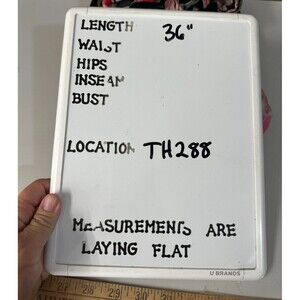 LENGTH 36"
WAIST
HIPS
INSEAM
BUST
LOCATION TH288
MEASUREMENTS ARE
LAYING FLAT
U BRANDS